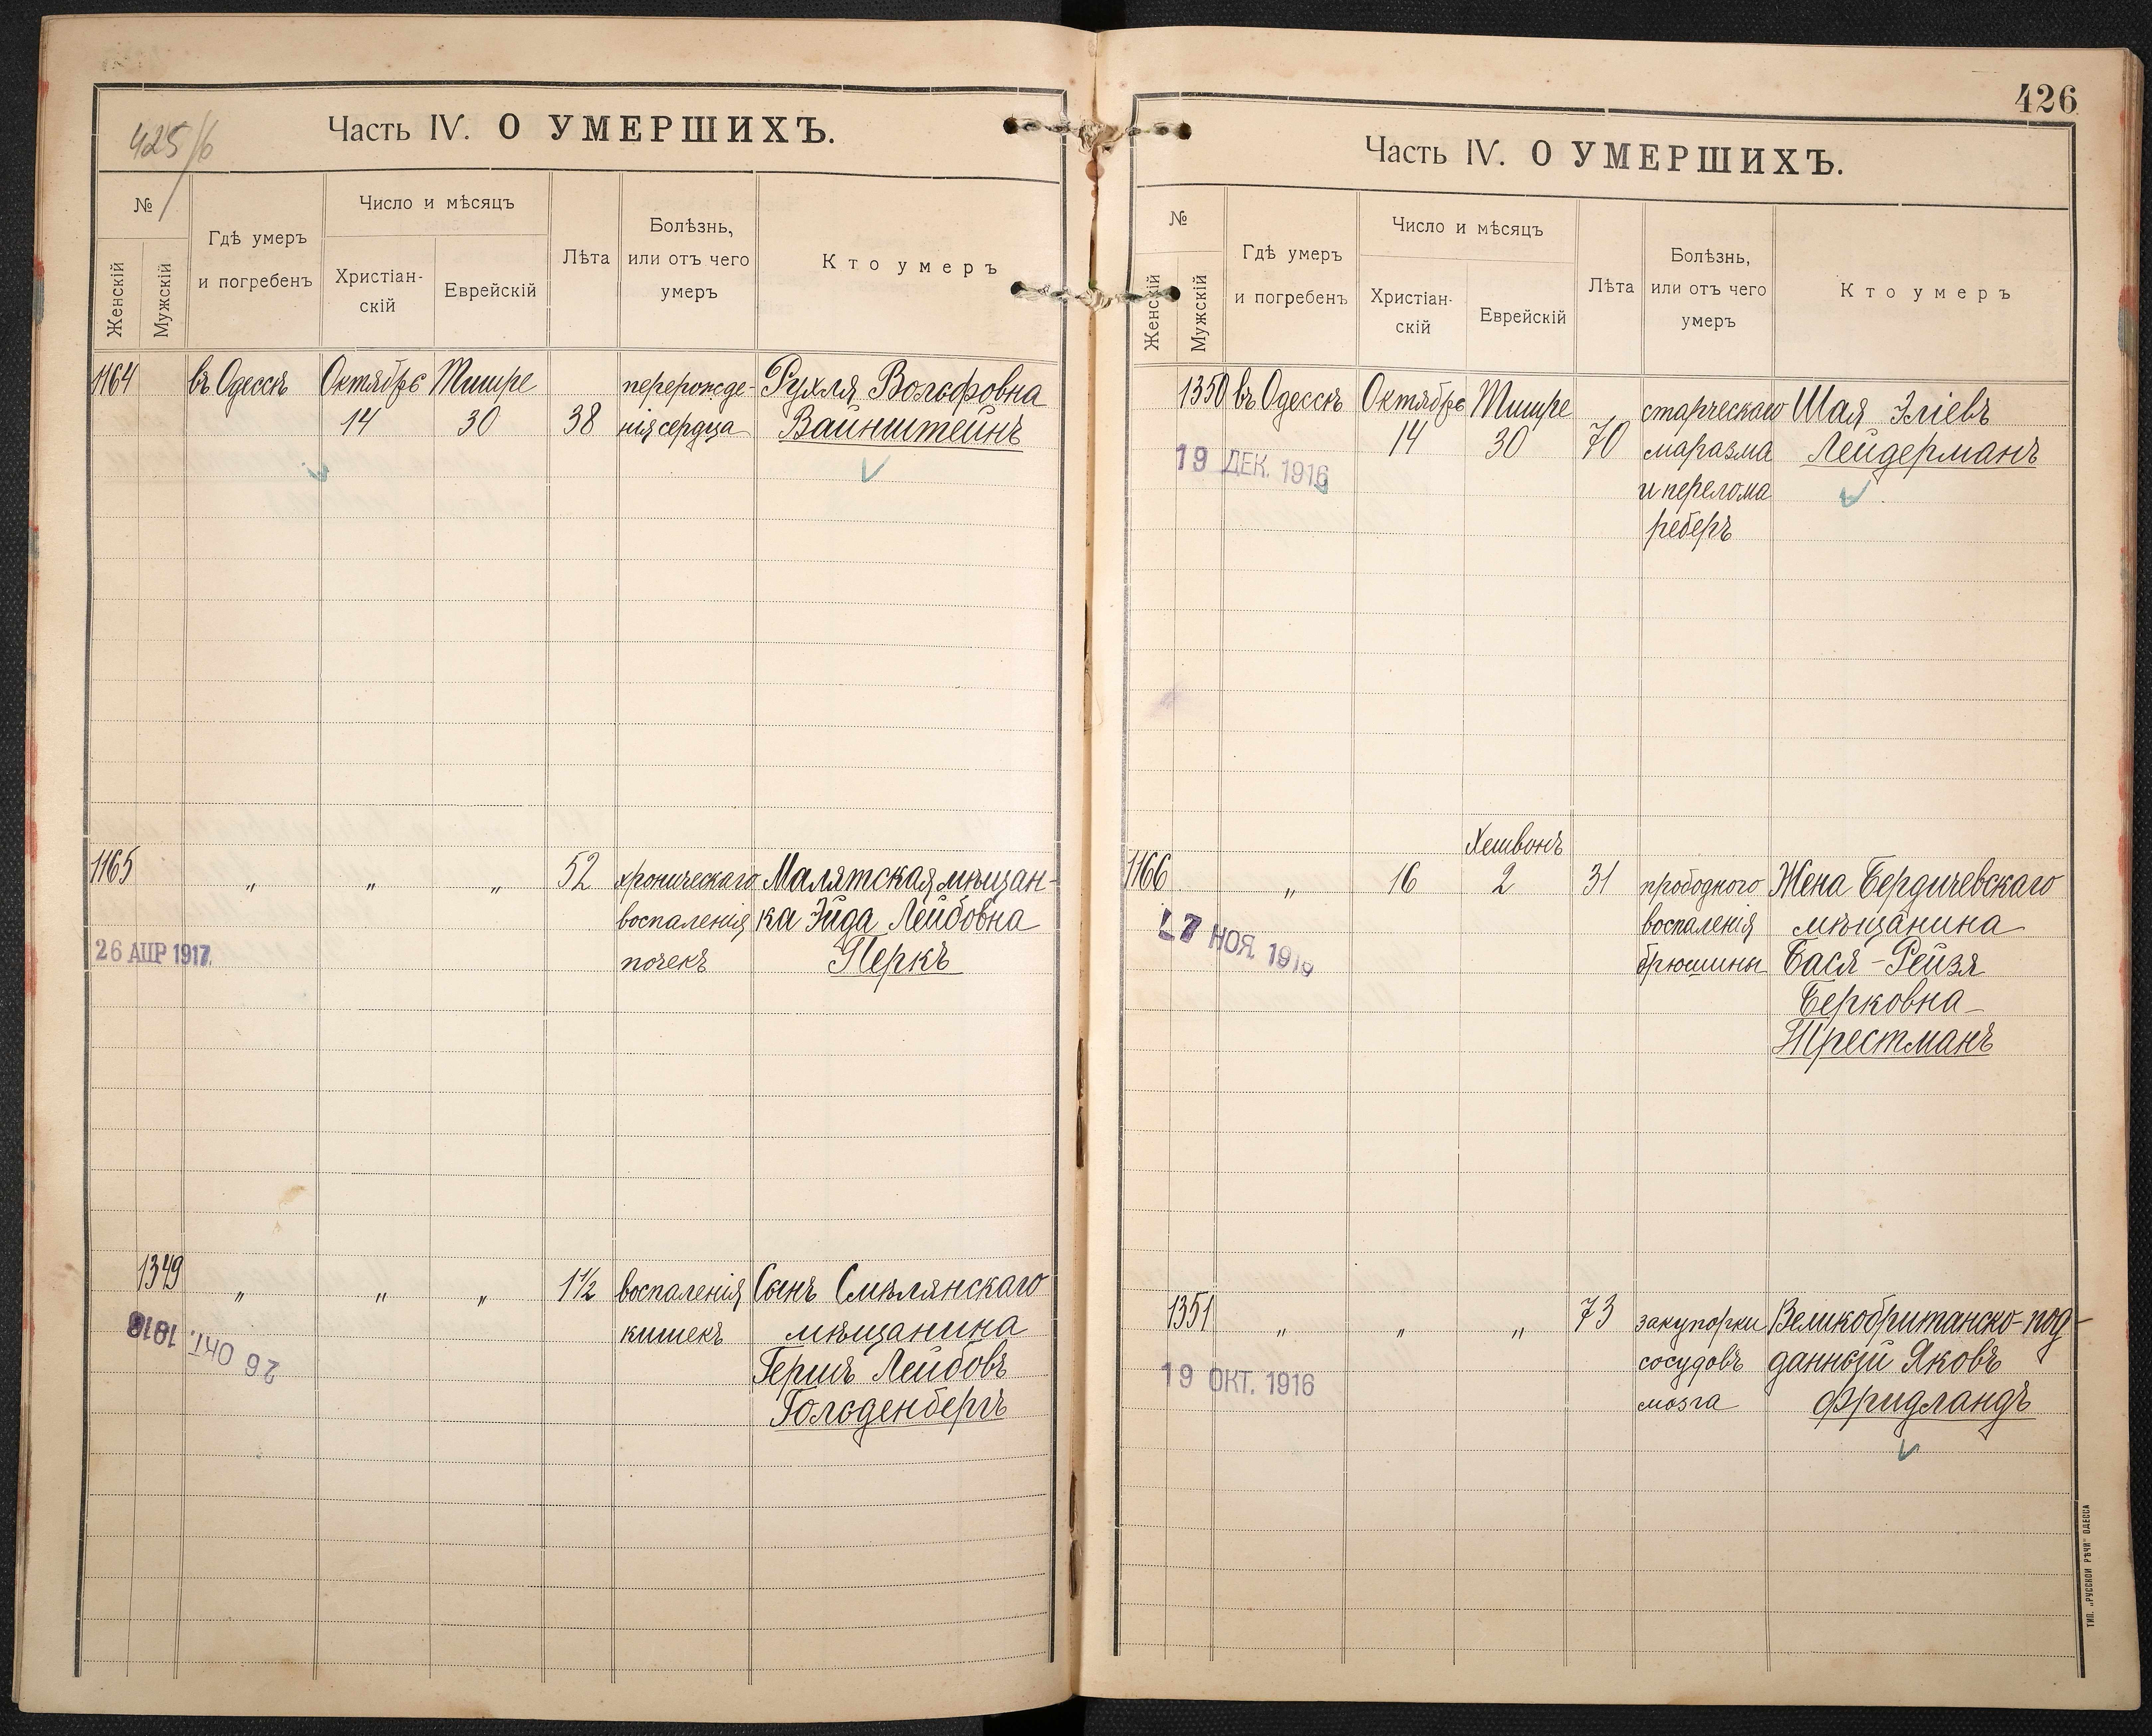 425/6
Часть IV. О УМЕРШИХЪ.
№
Женскій
Мужскій
Гдѣ умеръ
и погребенъ
Число и мѣсяцъ
Христіан-
скій
Еврейскій
Лѣта
Болѣзнь,
или отъ чего
умеръ
Кто умеръ
1164 въ Одессѣ Октябрь Тишре перерожде- Рухля Вольфовна
14 30 38 нія сердца Вайнштейнъ
1165 „ „ „ 52 хроническаго Малятская мѣщан-
воспаленія ка Эйда Лейбовна
26 АПР 1917. почекъ Перкъ
1349 „ „ „ 1½ воспаленія Сынъ Смѣлянскаго
кишекъ мѣщанина
26 ОКТ. 1916
Гершъ Лейбовъ
Гольденбергъ
426
Часть IV. О УМЕРШИХЪ.
№
Женскій
Мужскій
Гдѣ умеръ
и погребенъ
Число и мѣсяцъ
Христіан-
скій
Еврейскій
Лѣта
Болѣзнь,
или отъ чего
умеръ
Кто умеръ
1350 въ Одессѣ Октябрь Тишре старческаго Шая Эліевъ
14 30 70 маразма Лейдерманъ
19 ДЕК. 1916
и перелома
реберъ
Хешвонъ
1166 „ 16 2 31 прободного Жена Бердичевскаго
воспаленія мѣщанина
НОЯ. 1916
брюшины Бася-Рейзя
Берковна
Трестманъ
1351 „ „ „ 73 закупорки Великобританско-под-
19 ОКТ. 1916 сосудовъ данный Яковъ
мозга Фридландъ
ТИП. „РУССКОЙ РѢЧИ" ОДЕССА